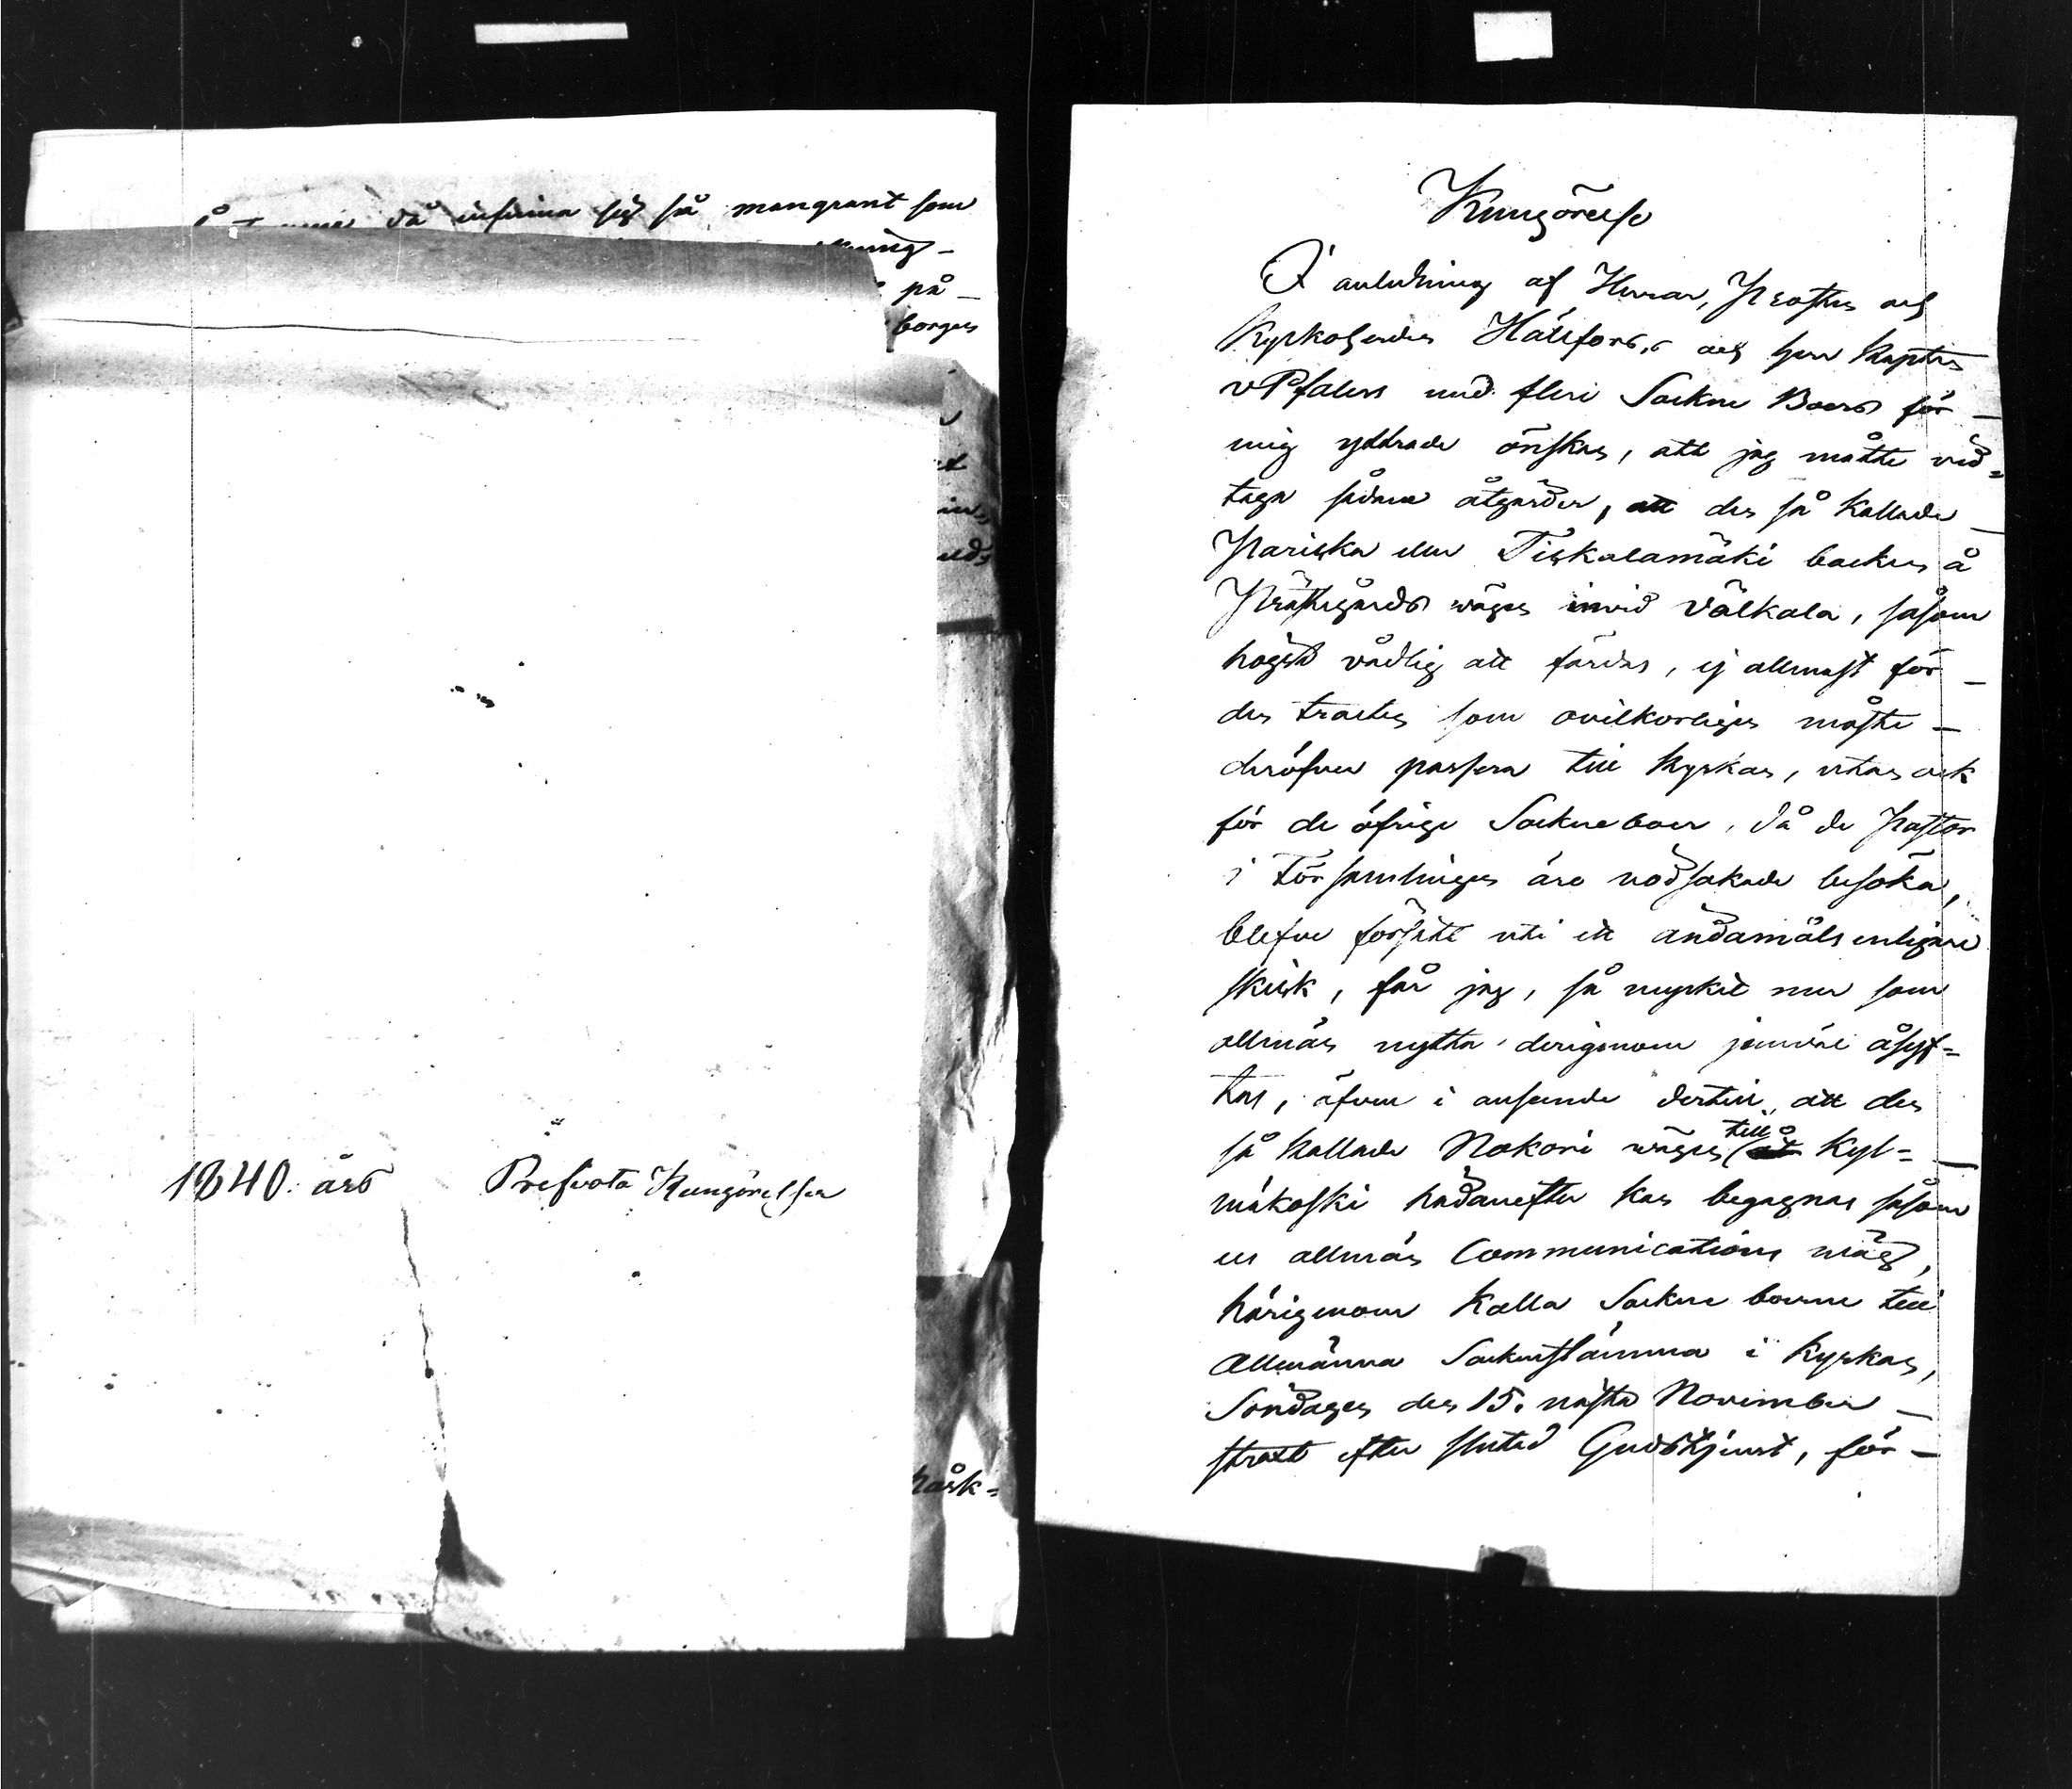 då infinna sig så mangrant som
ning-
på-
borgen
håsk=
1840. års Prifvata Kungörelser
Kungörelse
I anledning af Herrar, Prosten och
Kyrkoherden Hällfors, och herr Kapten
v Pfaler med flere Sockne Boers för-
mig yttrade önskan, att jag måtte vid=
taga sådana åtgärder, att den så kallade-
Pariska eller Tiskalamäki backen å
Prästegårds vägen invid Välkala, såsom
högst vådlig att färdas, ej allenast för-
den tracten som ovilkorligen måste-
deröfver passera till Kyrkan, utan ock
för de öfrige Sockneboer, då de Pastor
i Församlingen äro nödsakade besöka,
blefve försatt uti ett ändamåls enligare
skick, får jag, så mycket mer som
allmän nytta derigenom jemväl åsyf=
tas, äfven i anseende dertill, att den
så kallade Nokori vägen till Kyl=
mäkoski hädanefter kan begagnas såsom
en allmän Communications väg,
härigenom kalla Sockne boerne till
Allmänna Sockenstämma i Kyrkan,
Söndagen den 15. nästa November-
straxt efter slutad Gudstjenst, för-